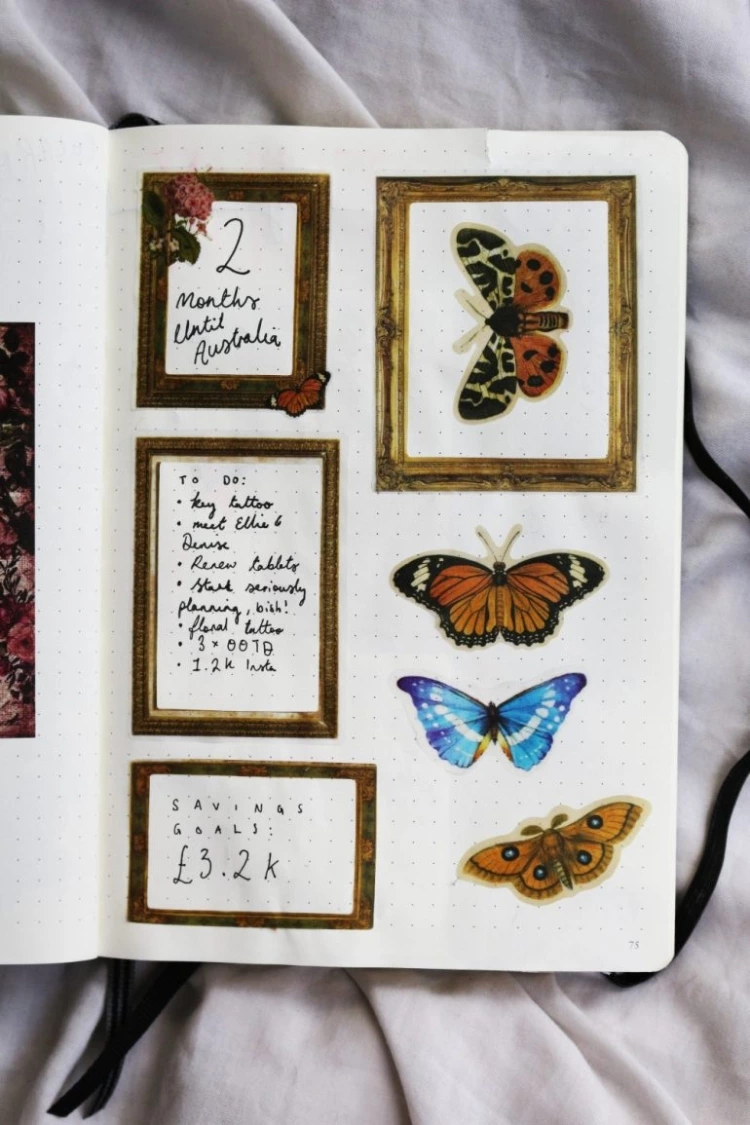 2
Months
Until
Australia
TO DO:
• key tattoo
• meet Ellie &
Denise
• Renew tablets
• Start seriously
planning, bish!
• floral tattoo
• 3 x OOTD
• 1.2k Insta
SAVINGS
GOALS:
£3.2k
75